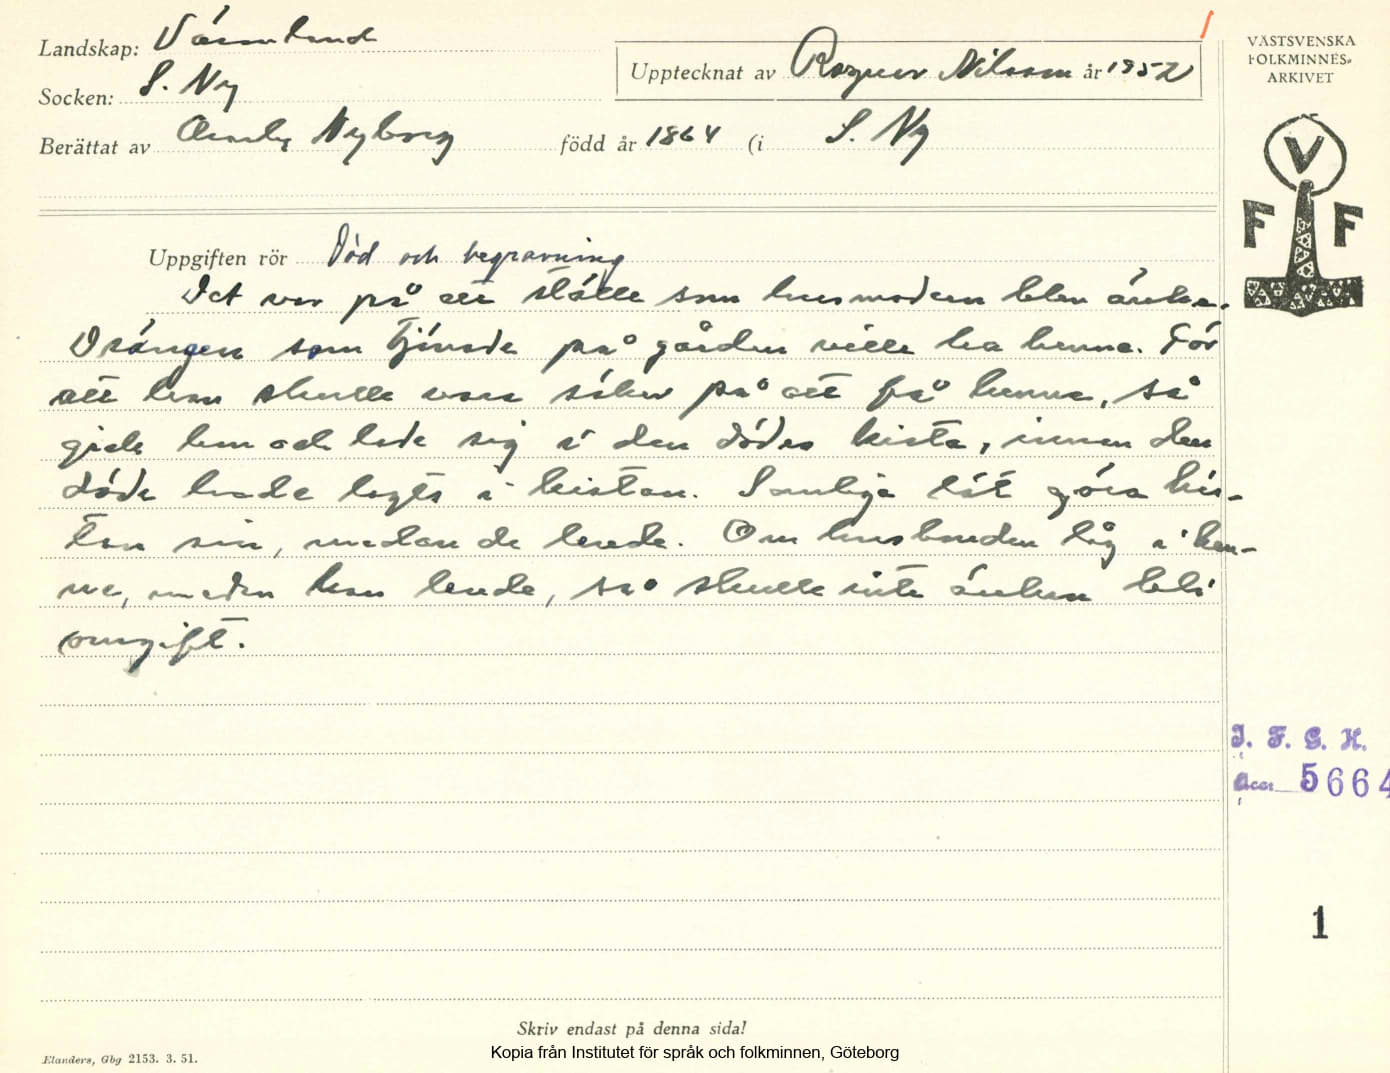 Landskap: Värmland
Upptecknat av Ragnar Nilsson år 1952
Socken: S. Ny
Berättat av Nyborg född år 1864 (i S. Ny
VÄSTSVENSKA
FOLKMINNES-
ARKIVET
V
F F
Uppgiften rör Död och begravning
Det var på ett ställe som husmodern blev änka.
Drängen som tjänade på gården ville ha henne. För
att han skulle vara säker på att få henne, så
gick han och lade sig i den dödes kista, innan den
döde hade lagts i kistan. Somliga lät göra kis-
tan sin, medan de levde. Om husbonden låg i hen-
ne, medan han levde, så skulle inte änkan bli
omgift.
I. F. G. H.
Acc. 5664
1
Skriv endast på denna sida!
Elanders, Gbg 2153. 3. 51.
Kopia från Institutet för språk och folkminnen, Göteborg